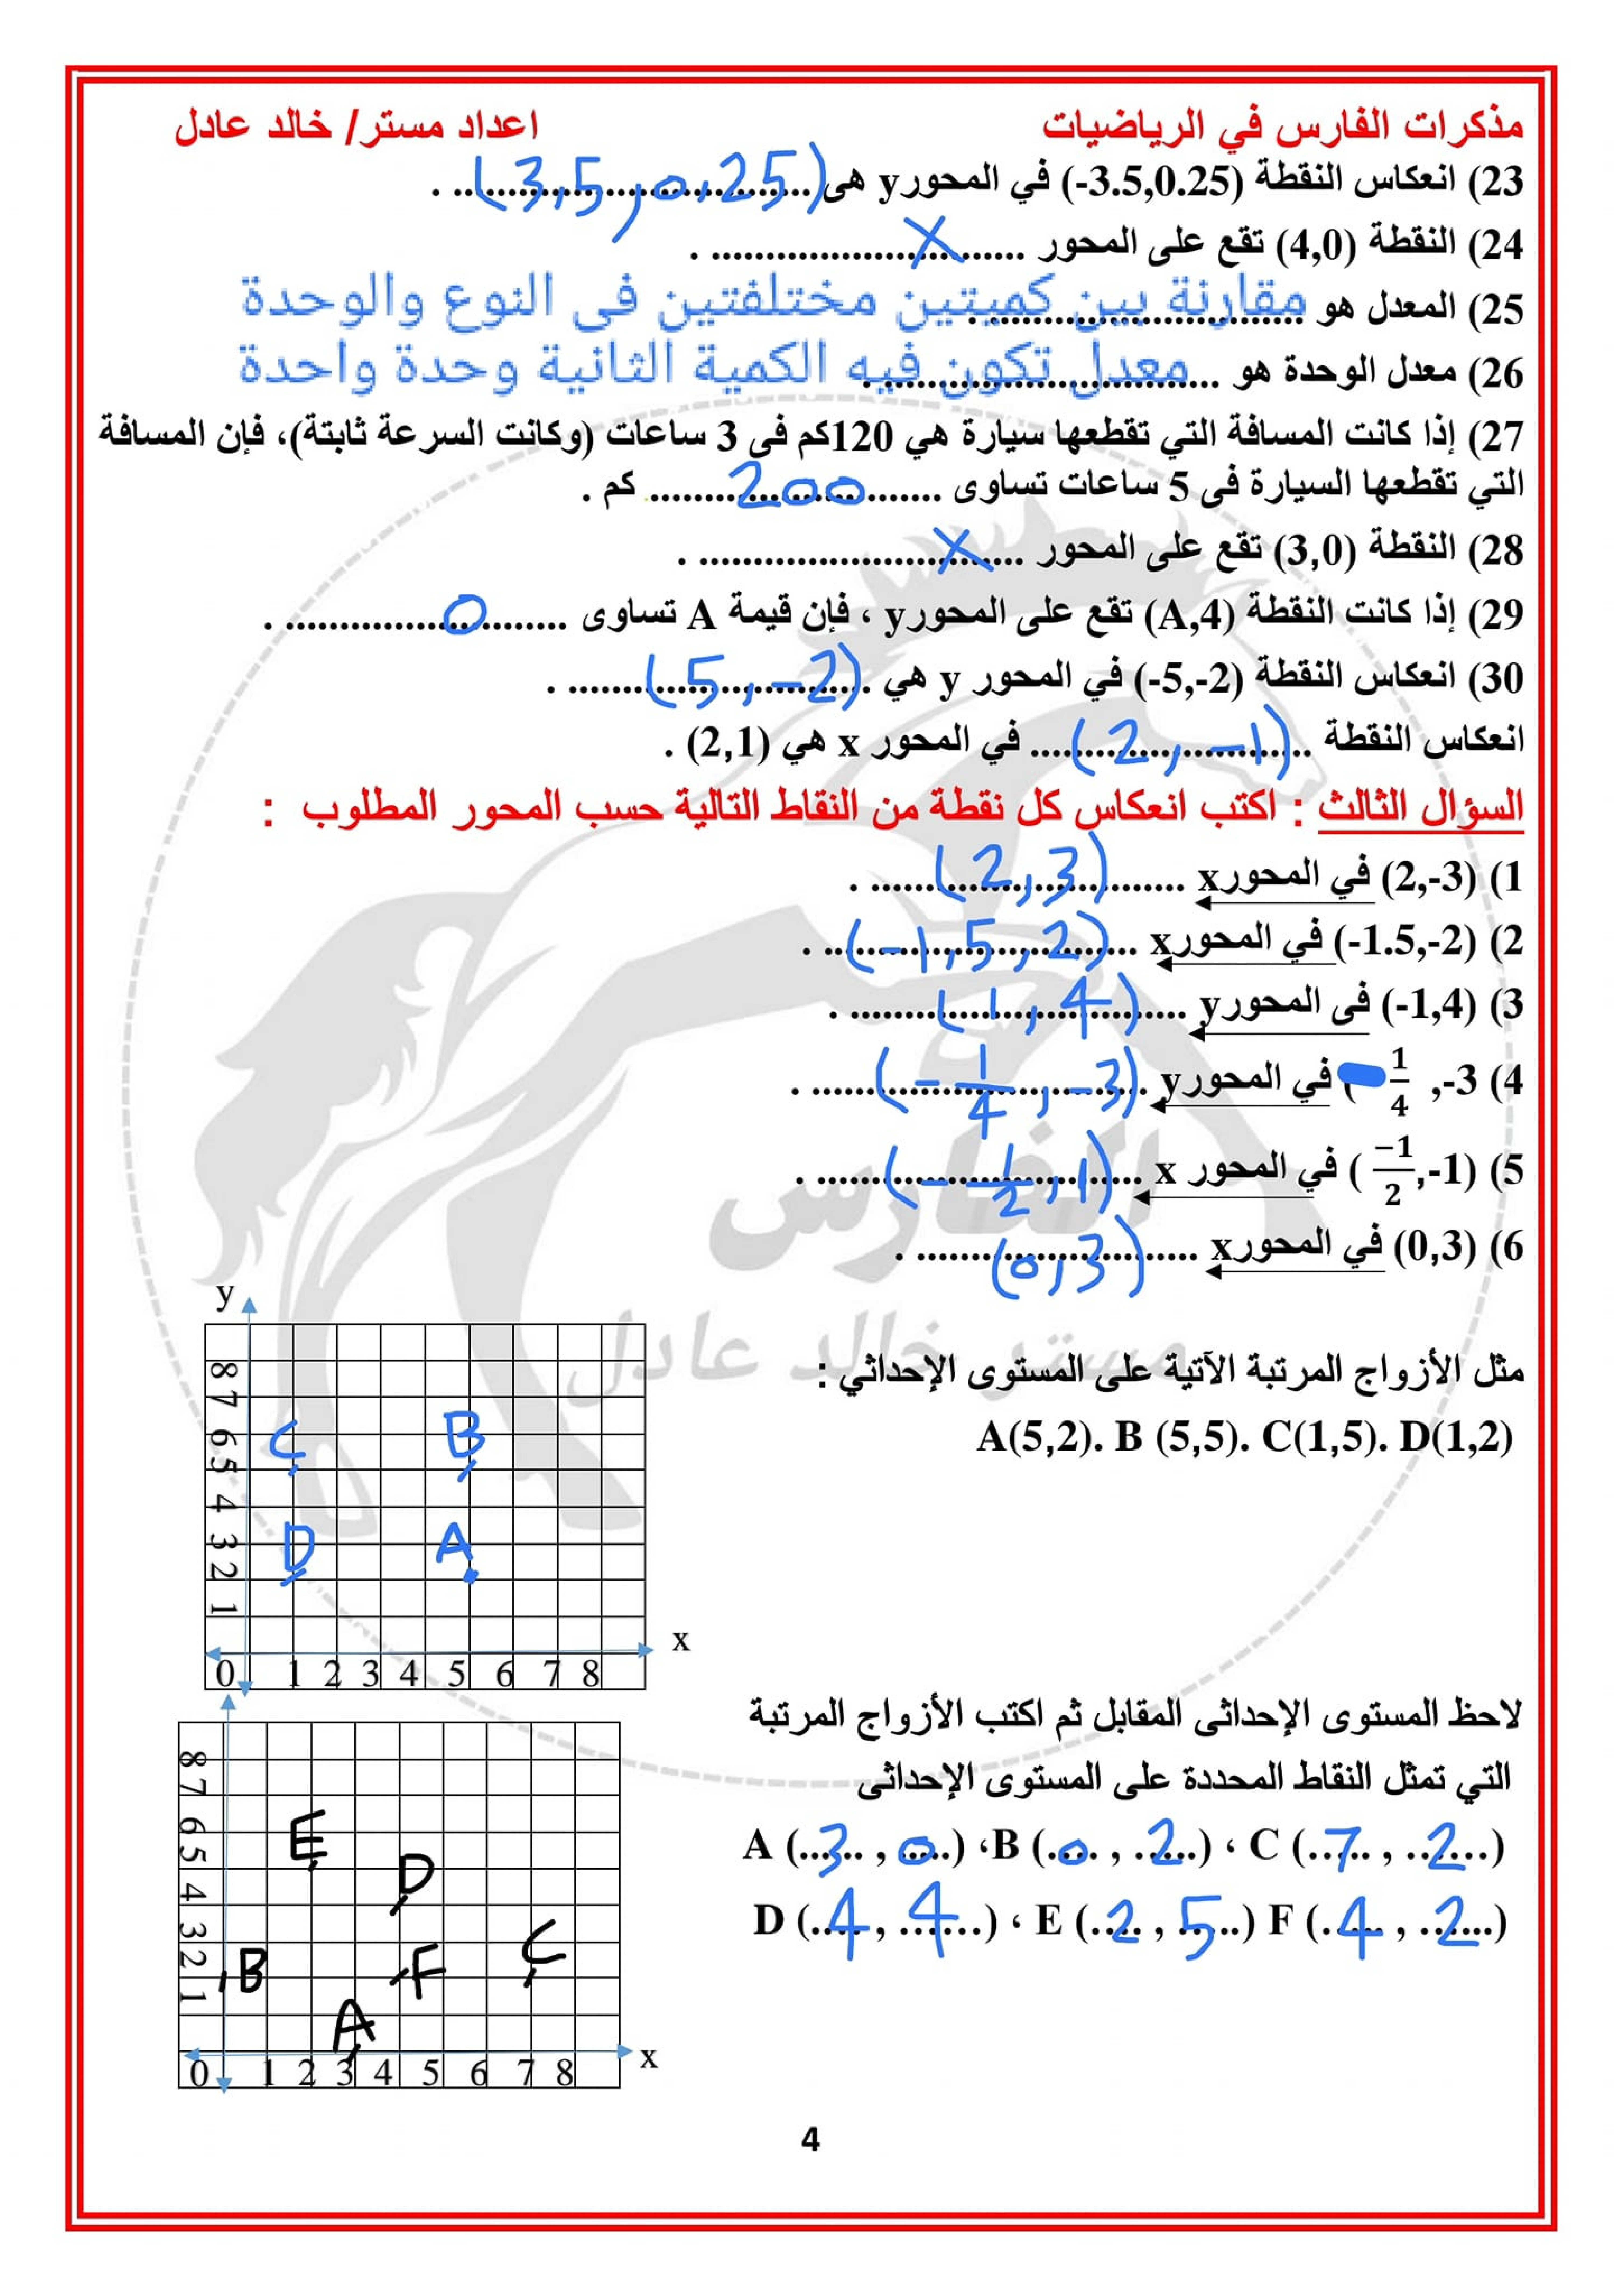 مذكرات الفارس في الرياضيات اعداد مستر/ خالد عادل
23) انعكاس النقطة (-3.5,0.25) في المحور y هى (3,5 , 0,25) .
24) النقطة (4,0) تقع على المحور X .
25) المعدل هو مقارنة بين كميتين مختلفتين فى النوع والوحدة
26) معدل الوحدة هو معدل تكون فيه الكمية الثانية وحدة واحدة
27) إذا كانت المسافة التي تقطعها سيارة هي 120كم فى 3 ساعات (وكانت السرعة ثابتة)، فإن المسافة
التي تقطعها السيارة فى 5 ساعات تساوى 200 كم .
28) النقطة (3,0) تقع على المحور X .
29) إذا كانت النقطة (A,4) تقع على المحور y ، فإن قيمة A تساوى 0 .
30) انعكاس النقطة (-5,-2) في المحور y هي (5 , -2) .
انعكاس النقطة (2 , -1) في المحور x هي (2,1) .
السؤال الثالث : اكتب انعكاس كل نقطة من النقاط التالية حسب المحور المطلوب :
1) (2,-3) في المحور x (2 , 3) .
2) (-1.5,-2) في المحور x (-1,5 , 2) .
3) (-1,4) فى المحور y (1 , 4) .
4) -3, 1/4 ) في المحور y (-1/4 , -3) .
5) (-1/2,-1) في المحور x (-1/2 , 1) .
6) (0,3) في المحور x (0 , 3) .
الفارس
مستر خالد عادل
مثل الأزواج المرتبة الآتية على المستوى الإحداثي :
A(5,2). B (5,5). C(1,5). D(1,2)
y
8
7
6 C B
5
4
3 D A
2
1
x
0 1 2 3 4 5 6 7 8
لاحظ المستوى الإحداثى المقابل ثم اكتب الأزواج المرتبة
التي تمثل النقاط المحددة على المستوى الإحداثى
A (3 , 0) ،B (0 , 2) ، C (7 , 2)
D (4 , 4) ، E (2 , 5) F (4 , 2)
8
7
6 E
5 D
4
3 C
2 B F
1 A
x
0 1 2 3 4 5 6 7 8
4